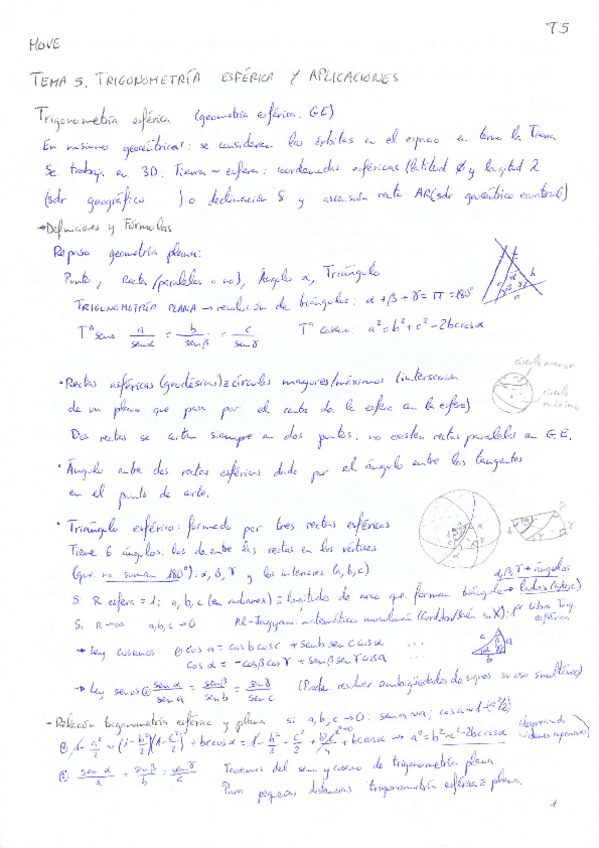 T5
MOVE
TEMA 5. TRIGONOMETRÍA ESFÉRICA Y APLICACIONES
Trigonometría esférica (geometría esférica: GE)
En misiones geocéntricas: se consideran las órbitas en el espacio en torno la Tierra
Se trabaja en 3D: Tierra ~ esfera: coordenadas esféricas (latitud φ y longitud λ
(sdr geográfico ) o declinación δ y ascensión recta AR (sdr geocéntrico ecuatorial)
→Definiciones y Fórmulas
Repaso geometría plana:
Punto, Recta (paralelas o no), Ángulo α, Triángulo
TRIGONOMETRÍA PLANA → resolución de triángulos: α+β+γ=π=180º
Tª seno: a/sen α = b/sen β = c/sen γ Tª coseno: a²=b²+c²-2bc cos α
c α b
β γ
a
• Rectas esféricas (geodésicas) ≡ círculos mayores/máximos (intersección
de un plano que pasa por el centro de la esfera con la esfera)
Dos rectas se cortan siempre en dos puntos. no existen rectas paralelas en G.E.
círculo menor
círculo máximo
• Ángulo entre dos rectas esféricas dado por el ángulo entre las tangentes
en el punto de corte.
• Triángulo esférico: formado por tres rectas esféricas
Tiene 6 ángulos: los de entre las rectas en los vértices
(que no suman 180º): α, β, γ y los interiores (a, b, c)
α, β, γ → ángulos
Si R esfera = 1: a, b, c (en radianes) ≡ longitudes de arco que forman triángulo → lados (a, b, c)
Si R→∞ a, b, c → 0 Al-Jayyani: matemático musulmán (Córdoba/Jaén s. X): 1er Libro Trig. esférica
→ Ley cosenos: ① cos a = cos b cos c + sen b sen c cos α ...
cos α = -cos β cos γ + sen β sen γ cos a ...
c a
b
→ Ley senos ② sen α/sen a = sen β/sen b = sen γ/sen c (Puede resolver ambigüedades de signos su uso simultáneo)
- Relación trigonometría esférica y plana si a, b, c → 0: sen a ≈ a; cos a ≈ 1-a²/2
① 1-a²/2 ≈ (1-b²/2)(1-c²/2) + bc cos α = 1-b²/2-c²/2+b²c²/4+bc cos α → a²=b²+c²-2bc cos α (despreciando órdenes superiores)
② sen α/a = sen β/b = sen γ/c Teoremas del seno y coseno de trigonometría plana
Para pequeñas distancias trigonometría esférica ≡ plana
1